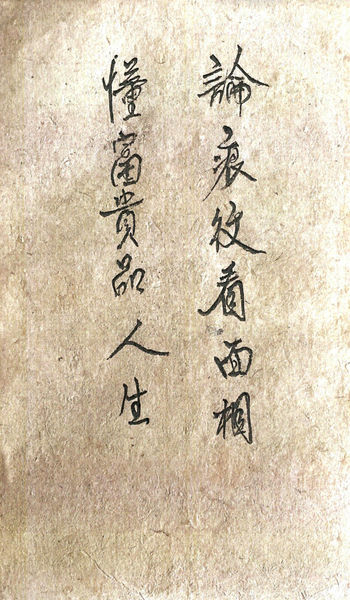 論痕紋看面相
懂富貴品人生